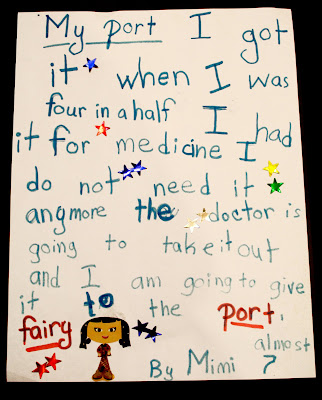 My port I got
it when I was
four in a half I had
it for medicine I
do not need it
anymore the doctor is
going to take it out
and I am going to give
it to the port
fairy
By Mimi almost 7